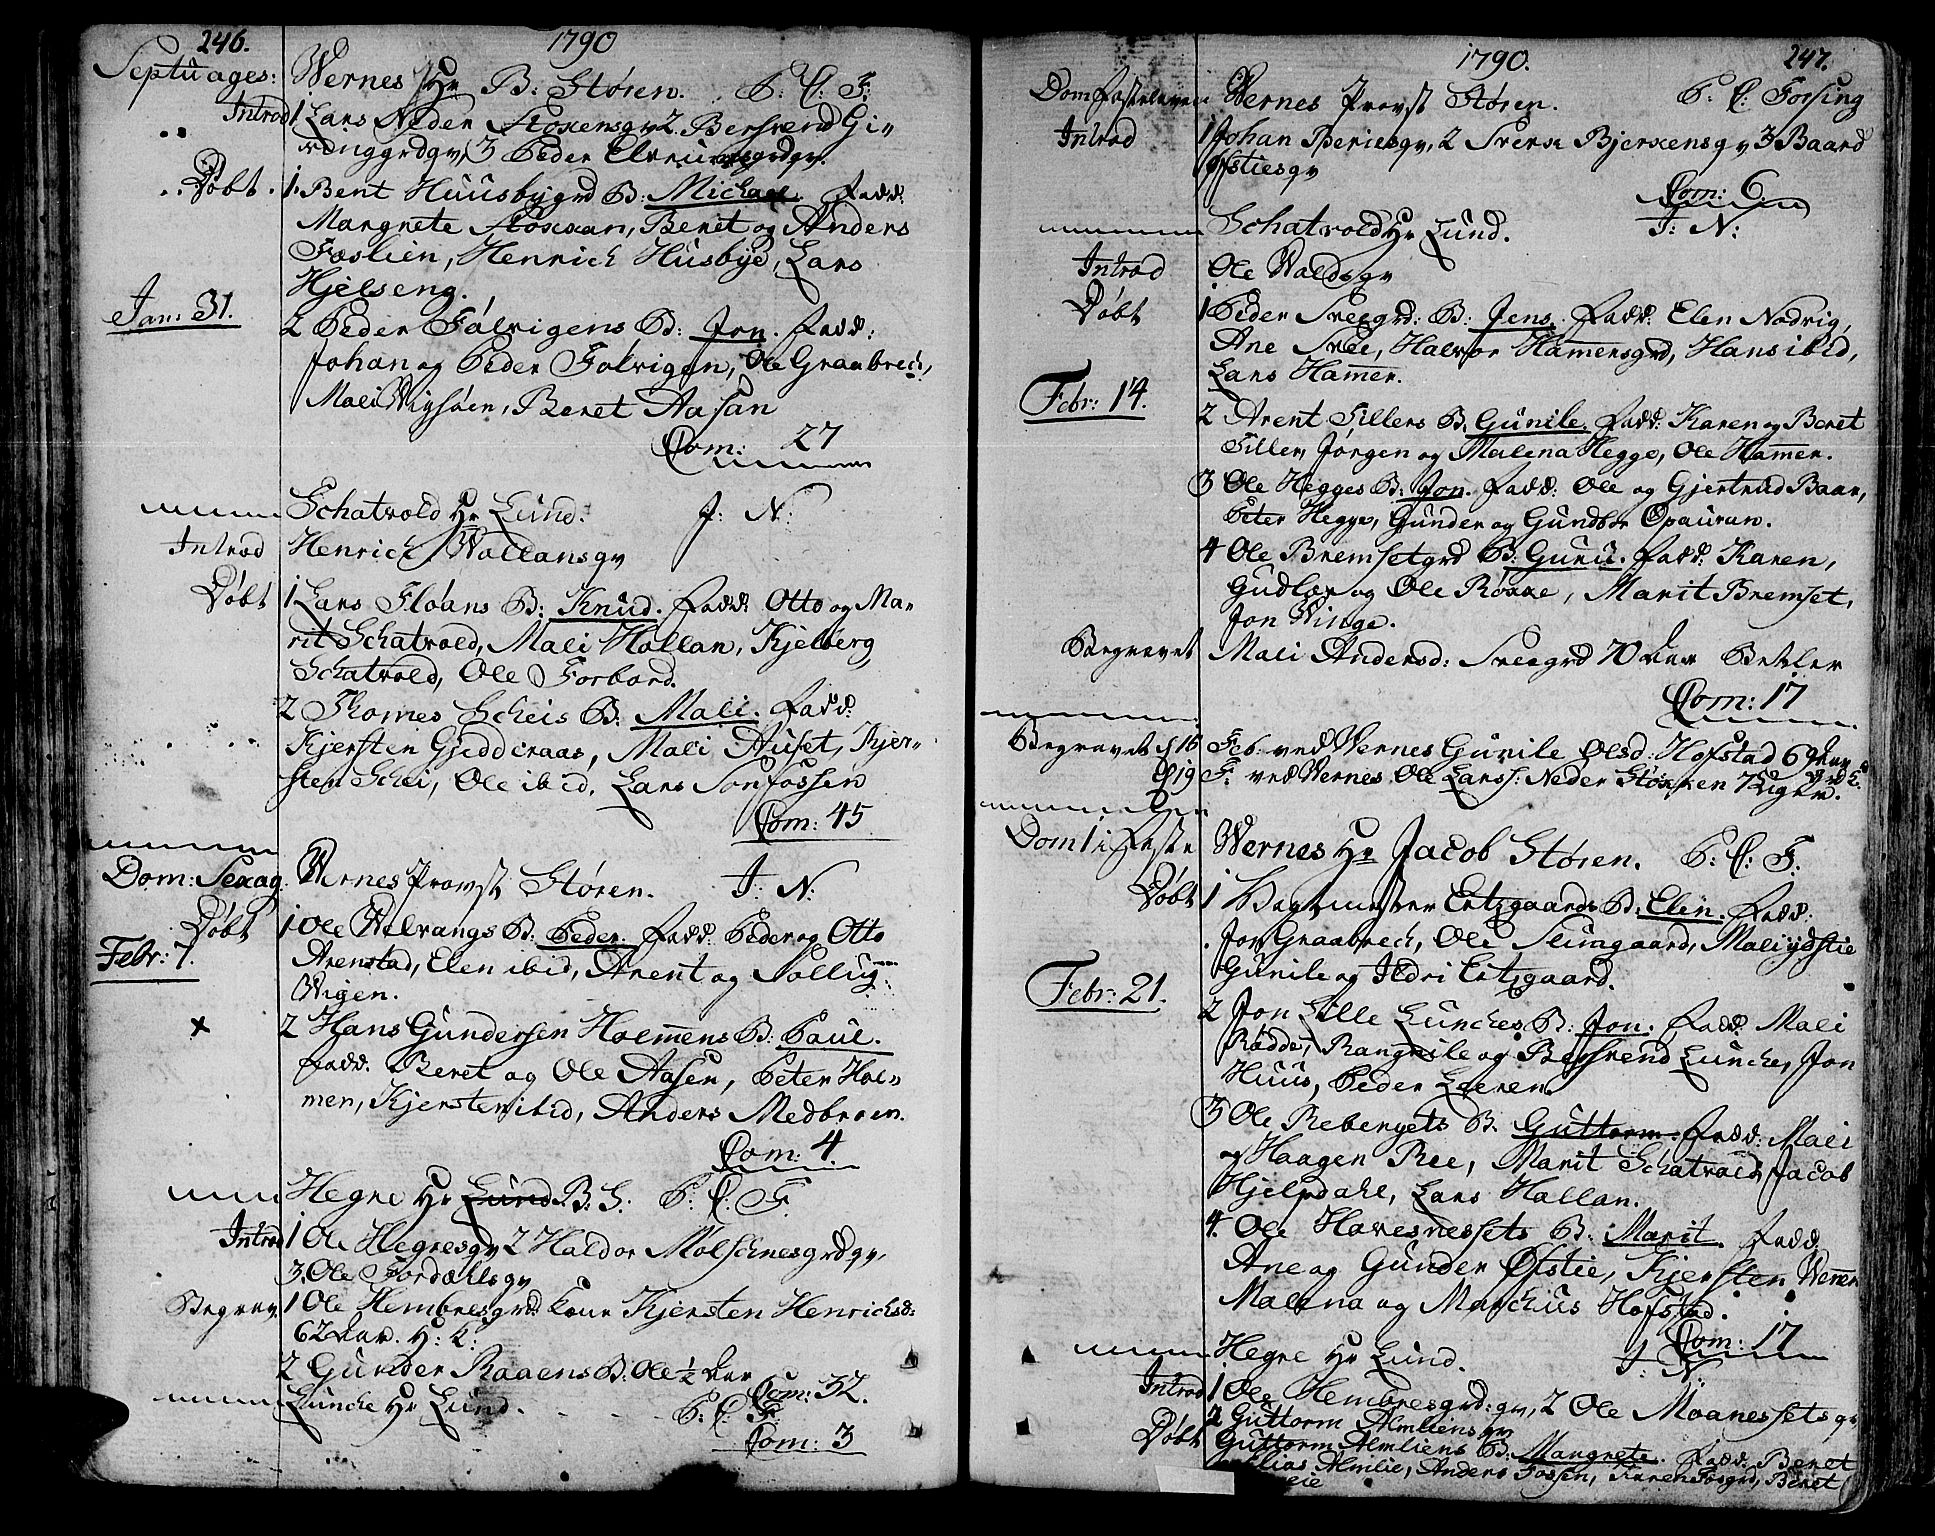 246. 1790
Septuages: Wernes Hr B: Stören. P: C: F:
Introd 1 Lars Neder Stoxensgv 2. Bersvend Gi-
vinggrdgv, 3 Peder
Döbt. 1. Bent Huusbygrd B: Michael. Fadd:
Margrete Stoxxan, Beret og Anders
Foslien, Henrich Husbye, Lars
Hjelseng.
Jan: 31. 2 Peder Folvigens B: Jon. Fadd:
Johan og Peder Folvigen, Ole Graabrech,
Mali Wigsöen, Beret Aasan
Com: 27
Schatvold Hr Lund. J: N:
Introd Henrich Wollansgv
Döbt 1 Lars Flöans B: Knud. Fadd: Otto og Ma-
rit Schatvold, Mali Hollan, Kjelberg
Schatvold, Ole Forbord.
2 Thomes Scheis B: Mali. Fadd:
Kjersten Gjeddraas, Mali Auset, Kjer-
sten Schei, Ole ibid, Lars Sonfossen
Com: 45
Dom: Sexag. Wernes Provst Stören. J: N:
Döbt 1 Ole Welvangs B: Peder. Fadd: Peder og Otto
Febr: 7. Arenstad, Elen ibid, Arent og Sollug
Wigen.
x 2 Hans Gundersen Holmens B: Paul.
Fadd: Beret og Ole Aasen, Peter Hol-
men, Kjersten ibid, Anders Medbroen.
Com: 4.
Hegre Hr Lund B: S. P: C: F:
Introd 1 Ole Hegresgv 2 Haldor Molschnesgrdgv,
3. Ole Fordahlsgv
Begrav. 1 Ole Hembresgrd: Kone Kjersten Henrichsd:
62 Aar. H: K:
2 Gunder Raaens B: Ole 1/2 Aar
Com: 32.
Luncke Hr Lund. P: C: F:
Com: 3
1790. 247.
Dom Fastelaven Wernes Provst Stören. P: C: Forsing
Introd 1 Johan Iveriesgv, 2 Svend Bjerxensgv 3 Baard
Ystiesgv
Com: 6.
Schatvold Hr Lund. J: N:
Introd Ole Waldsgv
Döbt 1 Peder Sveegrd: B: Jens. Fadd: Elen Nodvig,
Ane Svee, Halvor Hamersgrd, Hans ibid,
Lars Hamer.
Febr: 14. 2 Arent Tillers B: Gunile. Fadd: Karen og Beret
Tiller, Jörgen og Malena Hegge, Ole Hamer.
3 Ole Hegges B: Jon. Fadd: Ole og Gjertrud Baar,
Peter Hegge, Gunder og Gundbor Opauran.
4 Ole Bremsetgrd B: Guru. Fadd: Karen,
Gudlor og Ole Röxxe, Marit Bremset,
Jon Winge.
Begravet Mali Andersd: Sveegrd 70 Aar Betler
Com: 17
Begravet d 16 Feb: ved Wernes Gunile Olsd: Hofstad 69 Aar
d 19 F: ved Wernes Ole Larss: Neder Stoxxen 7 Uger.
Dom 1 i Faste Wernes Hr Jacob Stören. P: C: F:
Döbt 1 Ertzgaards B: Elen. Fadd:
Jon Graabrech, Ole Slungaard, Mali Ydstie
Gunile og Ildri Ertzgaard.
Febr: 21. 2 Jon Lille Lunckes B: Jon. Fadd: Mali
Rödde, Rangnile og Bersvend Luncke, Jon
Huus, Peder Leeren.
3 Ole Rebergets B. Guttorm. Fadd: Mali
og Haagen Ree, Marit Schatvold, Jacob
Hjelpdahl, Lars Hallan.
4. Ole Havesnessets B: Marit. Fadd:
Ane og Gunder Öfstie, Kjersten Weren
Malena og Marchus Hofstad.
Com: 17
Hegre Hr Lund. J: N:
Introd 1 Ole Hembresgrd: gv, 2 Ole Moanessetsgv
2 Guttorm Almliensgv
Döbt Guttorm Almliens B: Margrete. Fadd: Beret
Elias Almlie, Anders Fossen, Karen Fosgrd, Beret